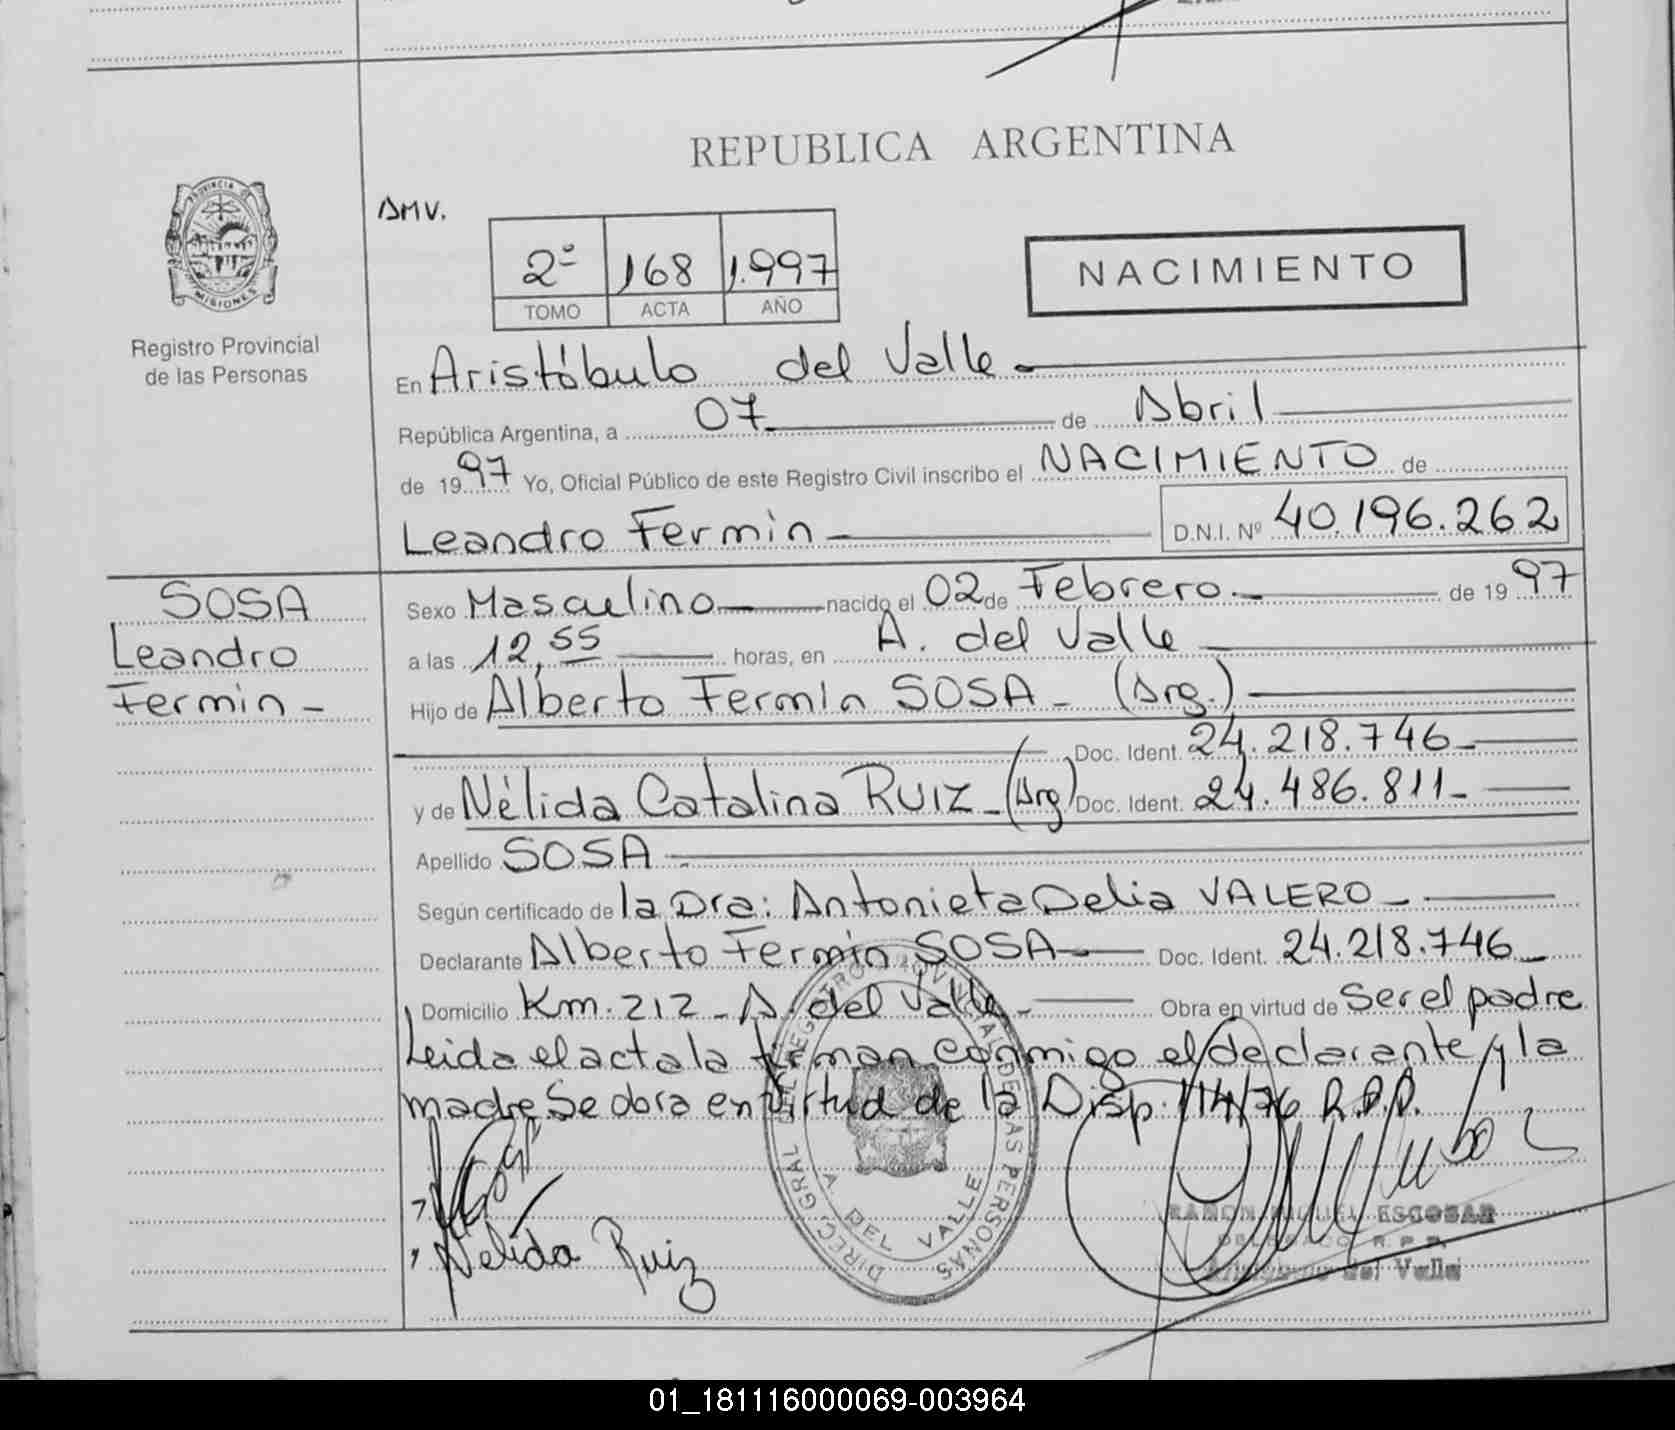 REPUBLICA ARGENTINA
PROVINCIA DE
MISIONES
Registro Provincial
de las Personas
AMV.
2º 168 1.997
TOMO ACTA AÑO
NACIMIENTO
En Aristóbulo del Valle
República Argentina, a 07 de Abril
de 1997 Yo, Oficial Público de este Registro Civil inscribo el NACIMIENTO de
Leandro Fermin D.N.I. Nº 40.196.262
SOSA
Leandro
Fermin -
Sexo Masculino nacido el 02 de Febrero. de 1997
a las 12,55 horas, en A. del Valle
Hijo de Alberto Fermin SOSA - (Arg.)
Doc. Ident. 24.218.746-
y de Nélida Catalina RUIZ - (Arg) Doc. Ident. 24.486.811-
Apellido SOSA
Según certificado de la Dra: Antonieta Delia VALERO -
Declarante Alberto Fermin SOSA Doc. Ident. 24.218.746
Domicilio Km. 212 - A. del Valle - Obra en virtud de Ser el padre
Leida el acta la firman conmigo el declarante y la
madre Se obra en virtud de la Disp. 114/76 R.P.P.
DIREC. GRAL DEL REGISTRO PROVINCIAL DE LAS PERSONAS
A. DEL VALLE
Nelida Ruiz
RAMON MIGUEL ESCOBAR
DELEGADO R. P. P.
Aristobulo del Valle
01_181116000069-003964